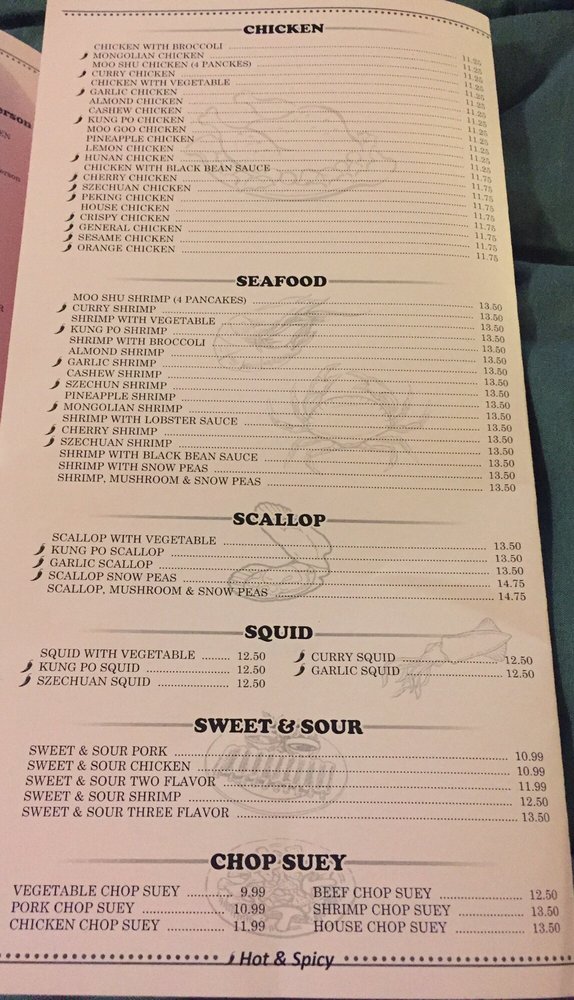 erson
EN
erson
R
CHICKEN
CHICKEN WITH BROCCOLI 11.25
MONGOLIAN CHICKEN 11.25
MOO SHU CHICKEN (4 PANCKES) 11.25
CURRY CHICKEN 11.25
CHICKEN WITH VEGETABLE 11.25
GARLIC CHICKEN 11.25
ALMOND CHICKEN 11.25
CASHEW CHICKEN 11.25
KUNG PO CHICKEN 11.25
MOO GOO CHICKEN 11.25
PINEAPPLE CHICKEN 11.25
LEMON CHICKEN 11.25
HUNAN CHICKEN 11.25
CHICKEN WITH BLACK BEAN SAUCE 11.75
CHERRY CHICKEN 11.75
SZECHUAN CHICKEN 11.75
PEKING CHICKEN 11.75
HOUSE CHICKEN 11.75
CRISPY CHICKEN 11.75
GENERAL CHICKEN 11.75
SESAME CHICKEN 11.75
ORANGE CHICKEN 11.75
SEAFOOD
MOO SHU SHRIMP (4 PANCAKES) 13.50
CURRY SHRIMP 13.50
SHRIMP WITH VEGETABLE 13.50
KUNG PO SHRIMP 13.50
SHRIMP WITH BROCCOLI 13.50
ALMOND SHRIMP 13.50
GARLIC SHRIMP 13.50
CASHEW SHRIMP 13.50
SZECHUN SHRIMP 13.50
PINEAPPLE SHRIMP 13.50
MONGOLIAN SHRIMP 13.50
SHRIMP WITH LOBSTER SAUCE 13.50
CHERRY SHRIMP 13.50
SZECHUAN SHRIMP 13.50
SHRIMP WITH BLACK BEAN SAUCE 13.50
SHRIMP WITH SNOW PEAS 13.50
SHRIMP, MUSHROOM & SNOW PEAS 13.50
SCALLOP
SCALLOP WITH VEGETABLE 13.50
KUNG PO SCALLOP 13.50
GARLIC SCALLOP 13.50
SCALLOP SNOW PEAS 14.75
SCALLOP, MUSHROOM & SNOW PEAS 14.75
SQUID
SQUID WITH VEGETABLE 12.50
KUNG PO SQUID 12.50
SZECHUAN SQUID 12.50
CURRY SQUID 12.50
GARLIC SQUID 12.50
SWEET & SOUR
SWEET & SOUR PORK 10.99
SWEET & SOUR CHICKEN 10.99
SWEET & SOUR TWO FLAVOR 11.99
SWEET & SOUR SHRIMP 12.50
SWEET & SOUR THREE FLAVOR 13.50
CHOP SUEY
VEGETABLE CHOP SUEY 9.99
PORK CHOP SUEY 10.99
CHICKEN CHOP SUEY 11.99
BEEF CHOP SUEY 12.50
SHRIMP CHOP SUEY 13.50
HOUSE CHOP SUEY 13.50
Hot & Spicy